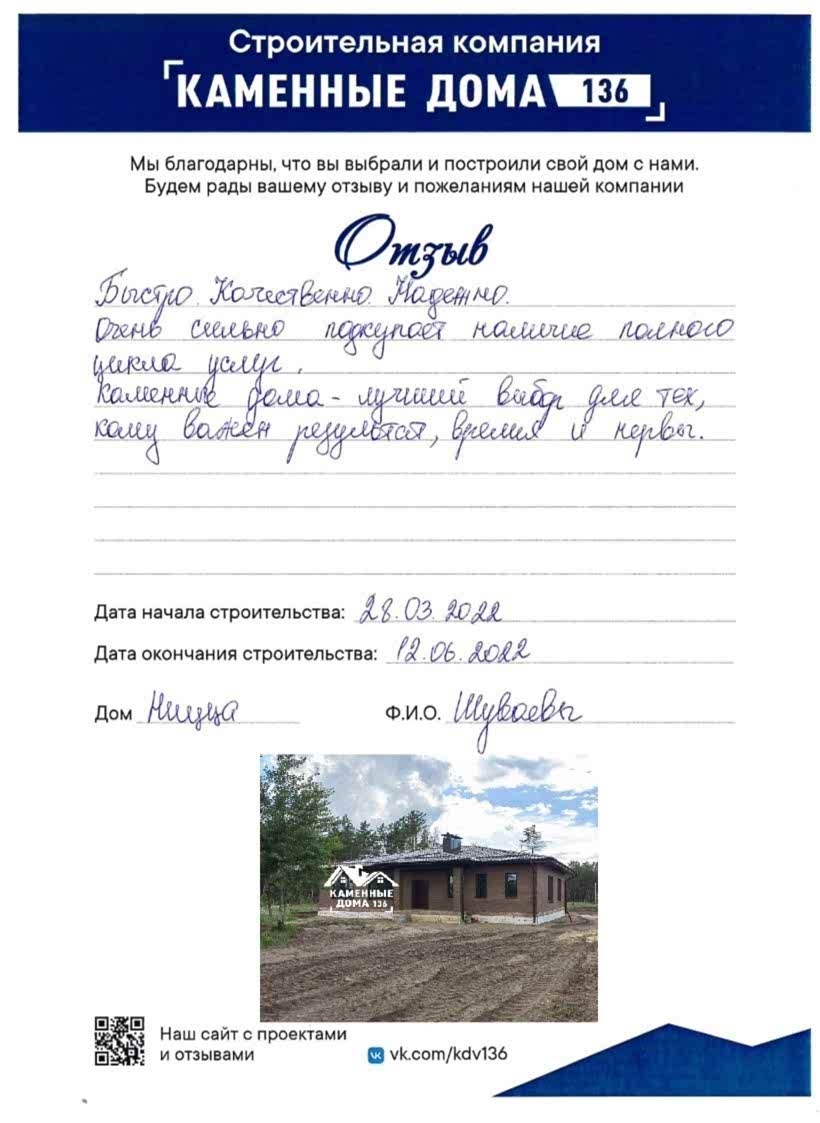 Строительная компания
КАМЕННЫЕ ДОМА 136
Мы благодарны, что вы выбрали и построили свой дом с нами.
Будем рады вашему отзыву и пожеланиям нашей компании
Отзыв
Быстро. Качественно. Надежно.
Очень сильно подкупает наличие полного
цикла услуг.
Каменные дома - лучший выбор для тех,
кому важен результат, время и нервы.
Дата начала строительства: 28.03.2022
Дата окончания строительства: 12.06.2022
Дом Ницца Ф.И.О. Шуваевы
КАМЕННЫЕ
ДОМА 136
Наш сайт с проектами
и отзывами
vk.com/kdv136